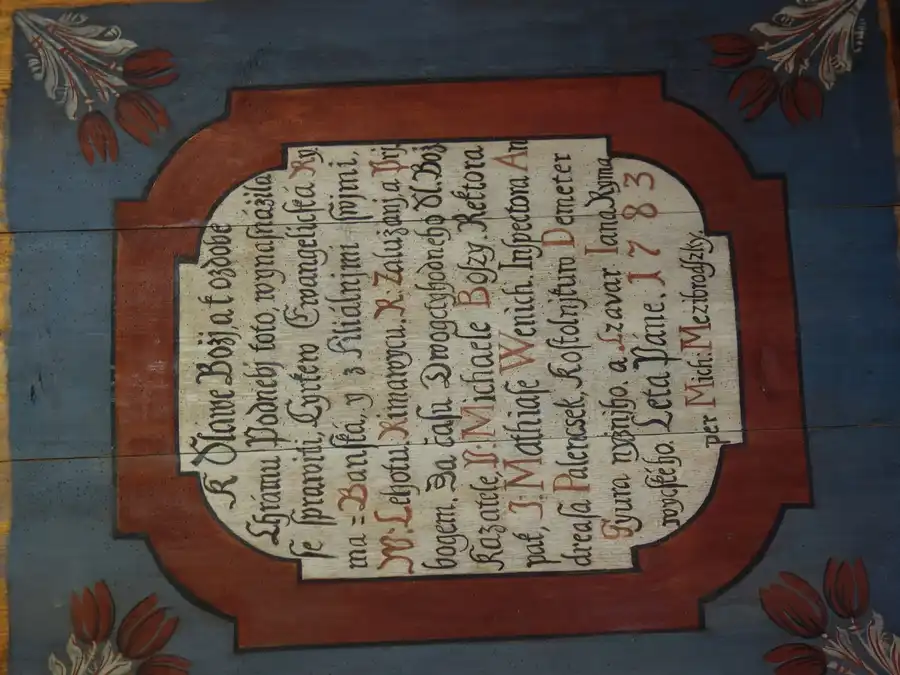 K Slawe Božj a k ozdobe
Chrámu Podnebj toto, wynasnážila
se sprawiti, Cyrkew Ewangelická Ry,
ma = Banská, y z Filiálnjmi swjmi,
W: Lehotu. Rimawycu. R. Zalužanj a Prj
bogem. Za času Dwogctyhodneho Sl. Bož
Kazatele, P: Michaele Boszy. Rektora
pak, J: Mathiase Wenich. Inspetora An
dreasa Palencsek, Kostolnjkuw Demeter
Gyura nyžnjho. a Czavar Jana Ryma
wyckého. Leta Pane. 1783
per Mich: Mezibrodszky.